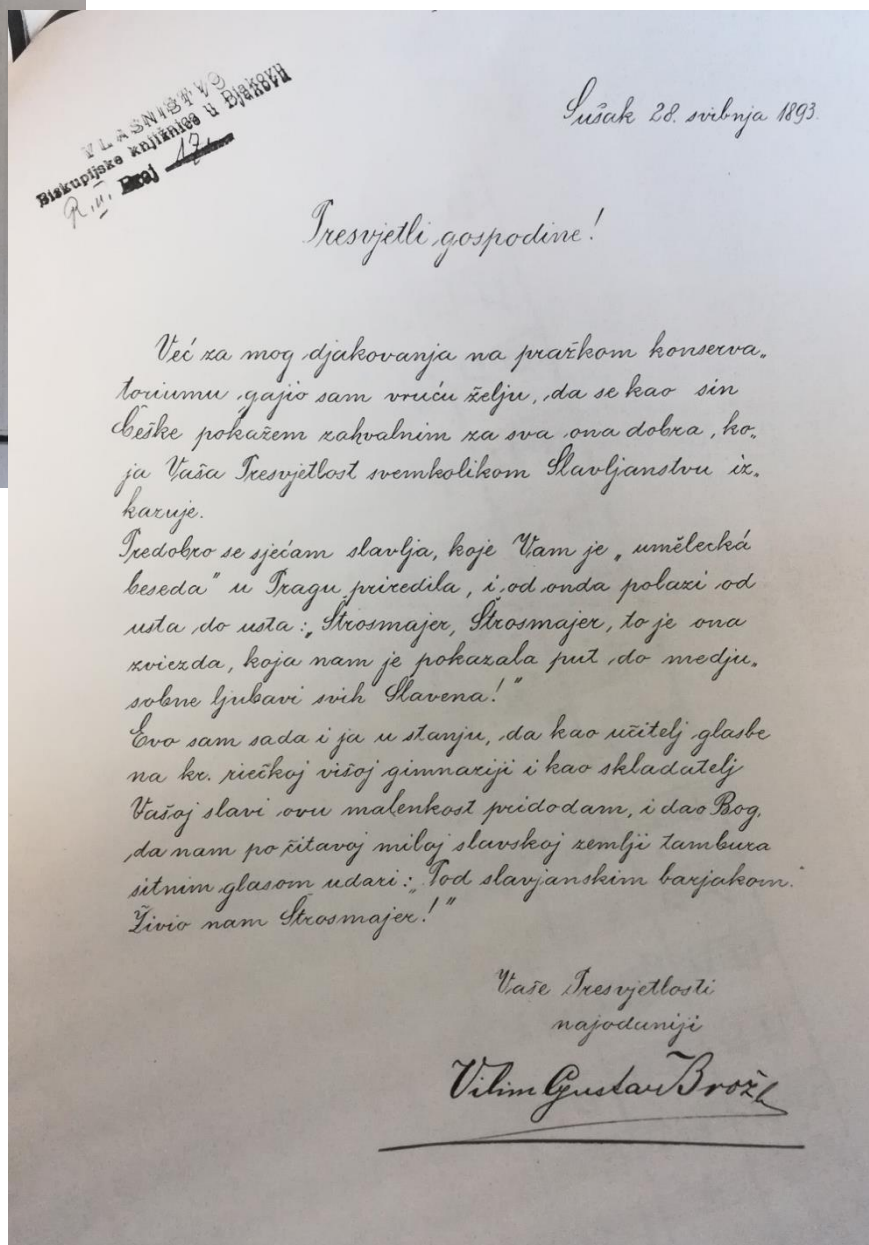 VLASNIŠTVO
Biskupijske knjižnice u Djakovu
R. II. Broj 17
Sušak 28. svibnja 1893.
Presvjetli gospodine!
Već za mog djakovanja na pražkom konserva„
toriumu gajio sam vruću želju, da se kao sin
Češke pokažem zahvalnim za sva ona dobra, ko„
ja Vaša Presvjetlost svemkolikom Slavljanstvu iz„
kazuje.
Predobro se sjećam slavlja, koje Vam je „umělecká
beseda" u Pragu priredila, i od onda polazi od
usta do usta: „Štrosmajer, Štrosmajer, to je ona
zviezda, koja nam je pokazala put do medju„
sobne ljubavi svih Slavena!"
Evo sam sada i ja u stanju, da kao učitelj glasbe
na kr. riečkoj višoj gimnaziji i kao skladatelj
Vašoj slavi ovu malenkost pridodam, i dao Bog,
da nam po čitavoj miloj slavskoj zemlji tambura
sitnim glasom udari: „Pod slavjanskim barjakom."
Živio nam Štrosmajer!"
Vaše Presvjetlosti
najodaniji
Vilim Gustav Brož